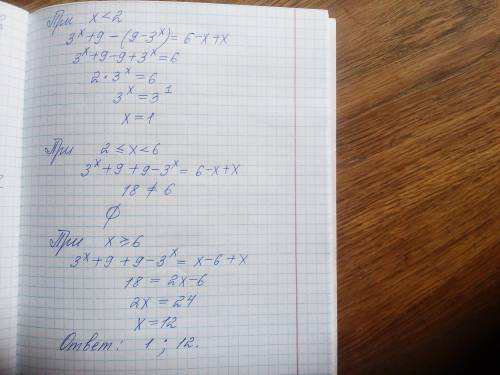 При x < 2
3ˣ+9 - (9 - 3ˣ) = 6 - x + x
3ˣ+9 - 9 + 3ˣ = 6
2 • 3ˣ = 6
3ˣ = 3¹
x = 1
При 2 ≤ x < 6
3ˣ + 9 + 9 - 3ˣ = 6 - x + x
18 ≠ 6
∅
При x ≥ 6
3ˣ + 9 + 9 - 3ˣ = x - 6 + x
18 = 2x - 6
2x = 24
x = 12
Ответ: 1 ; 12.